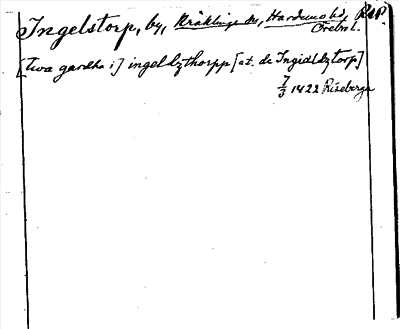 Ingelstorp, by, Kräklinge sn, Hardemo hd, RAP.
Örebro l.
[twa gardha i] ingeldzthorpp [at. de Ingieldztorp]
7/3 1422 Riseberga